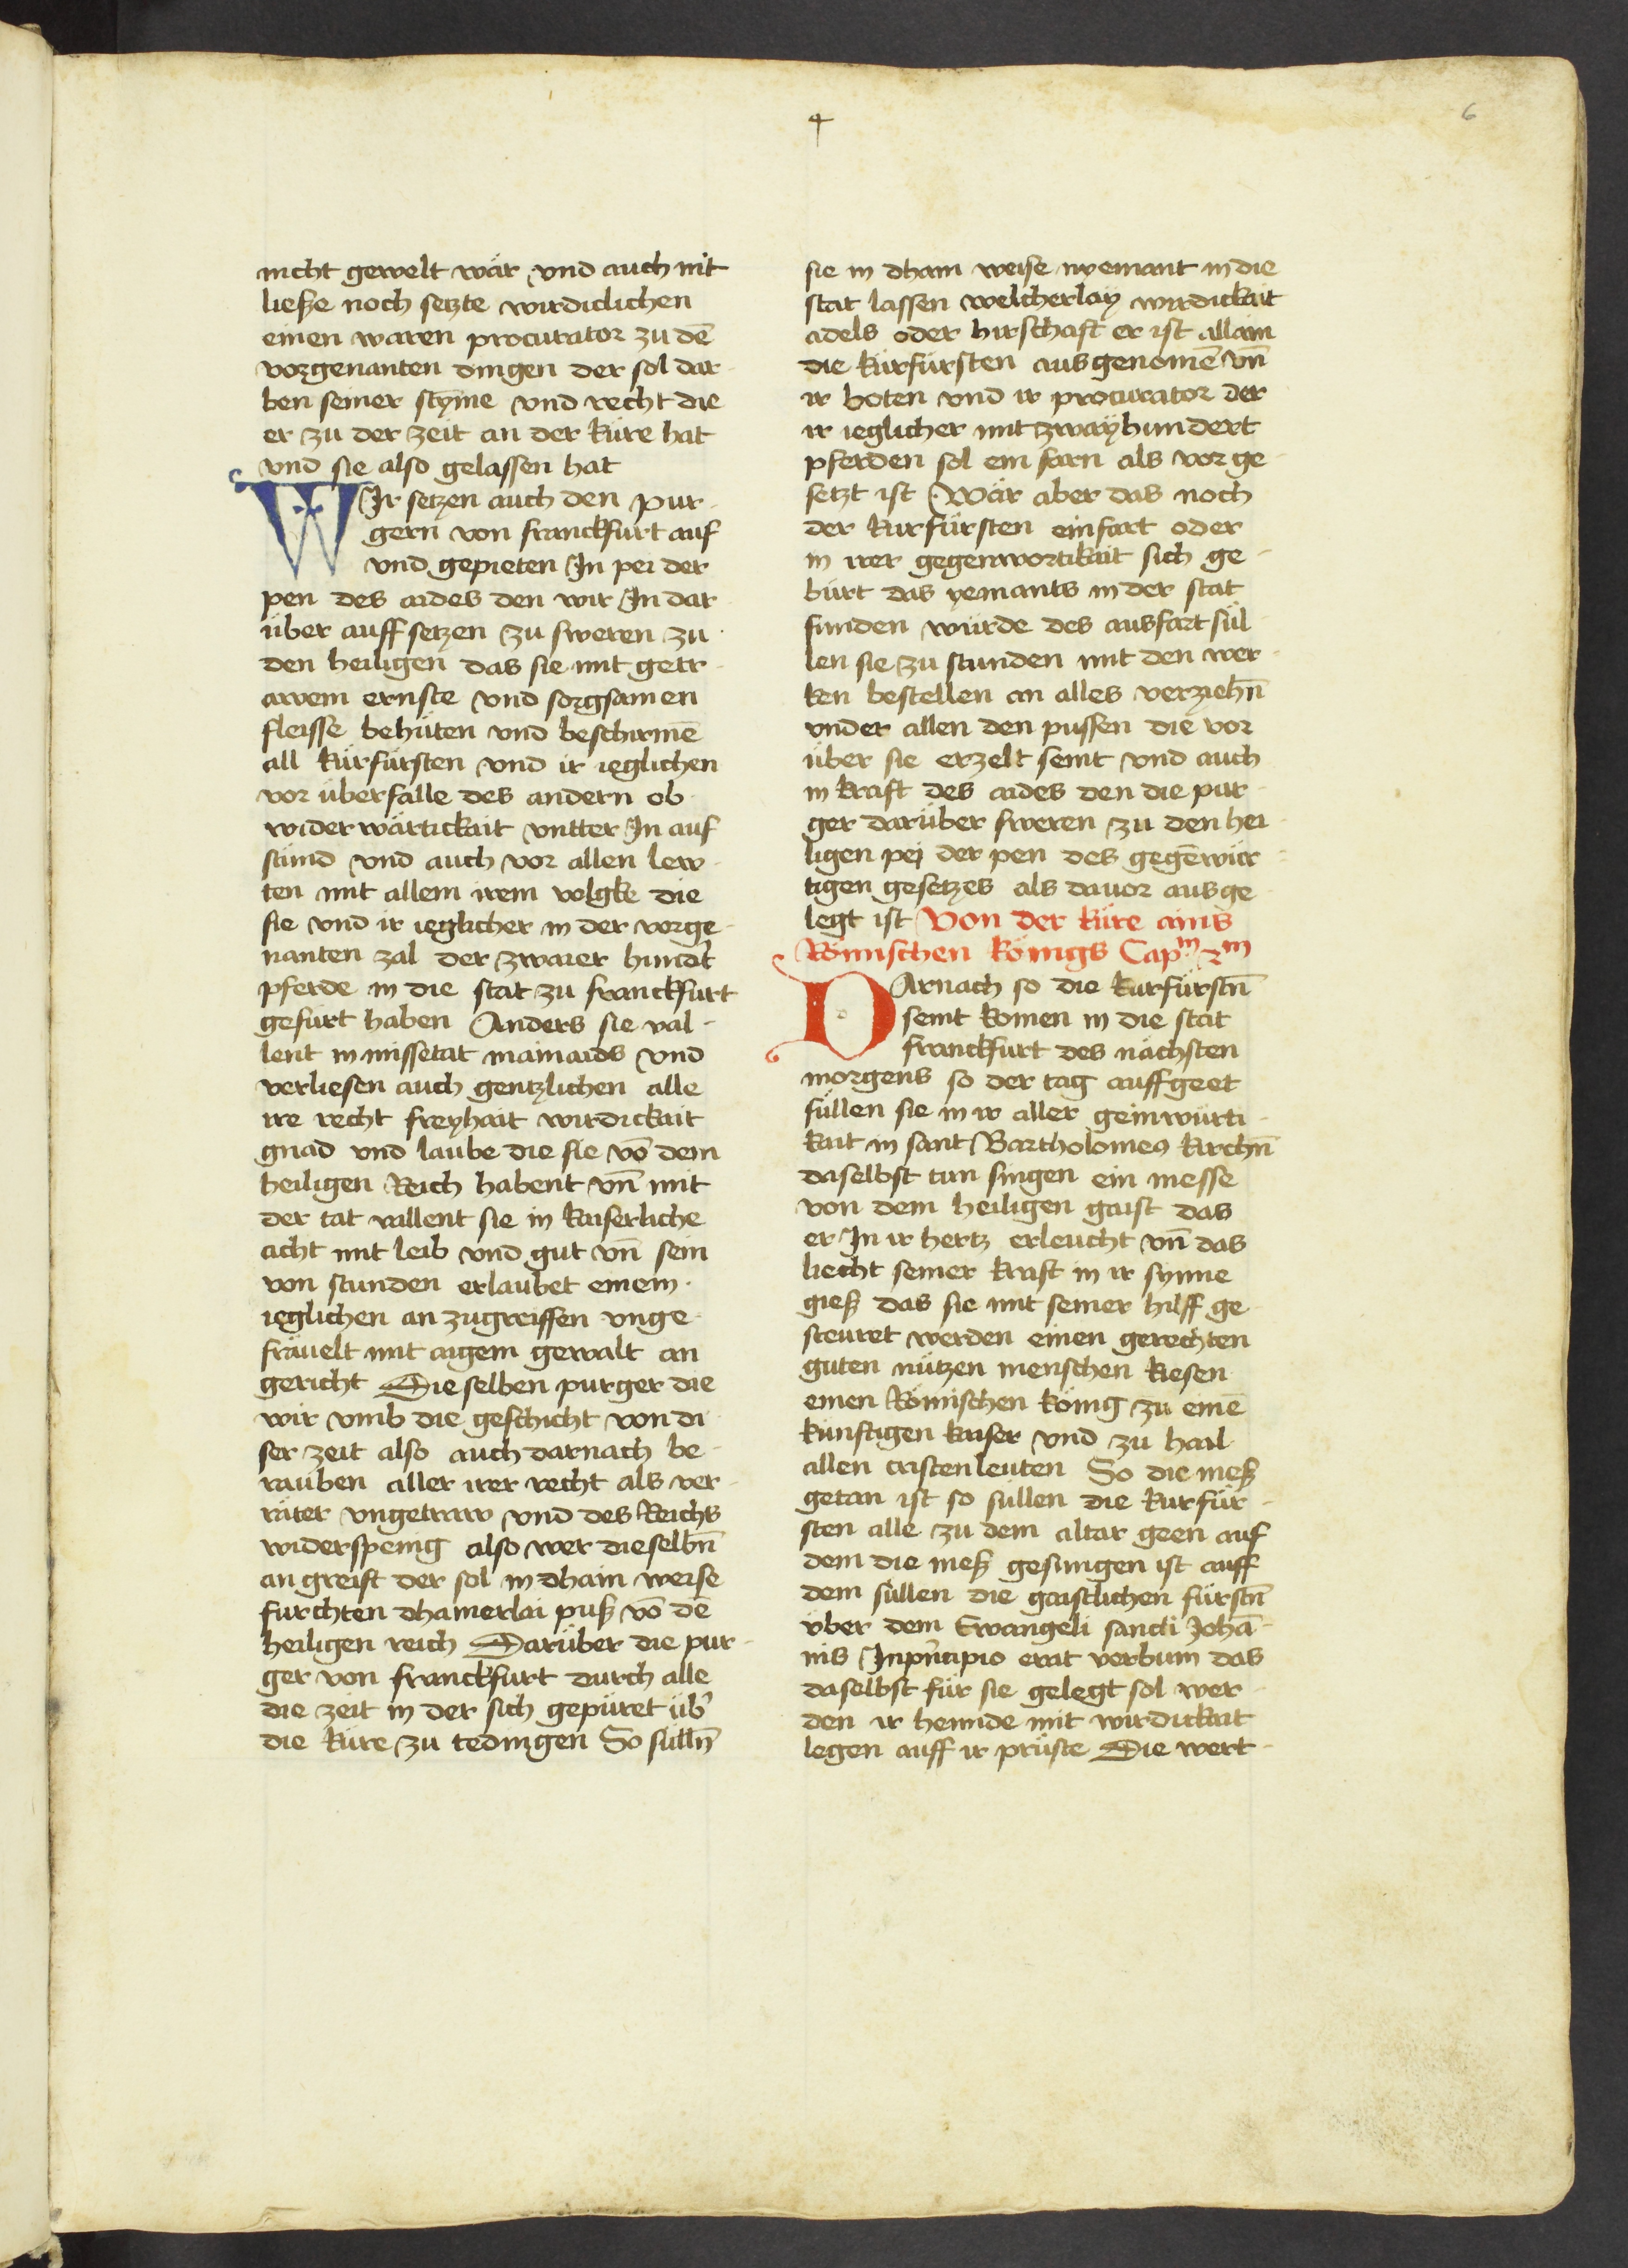 4
6
nicht gewelt wär vnd auch nit
ließe noch setzte wirdiclichen
einen waren procurator zu dē
vorgenanten dingen der sol dar¬
ben seiner stȳme vnd recht die
er zu der zeit an der küre hat
vnd sie also gelassen hat
WIr setzen auch den pur¬
gern von franckfurt auf
vnd gepieten In pei der
pen des aides den wir In dar
über auff setzen zu sweren zu
den heiligen das sie mit getr¬
awem ernste vnd sorgsamen
fleisse behüten vnd beschirmē
all kürfürsten vnd ir ieglichen
vor überfalle des andern ob
wider wärtickait vntter In auf
stünd vnd auch vor allen lew¬
ten mit allem irem volgke die
sie vnd ir ieglicher in der vorge¬
nanten zal der zwaier hundt
pferde in die stat zu franckfurt
gefürt haben Anders sie val¬
lent in missetat mainaids vnd
verliesen auch gentzlichen alle
ire recht freyhait wirdickait
gnad vnd laube die sie vō dem
heiligen Reich habent vn̄ mit
der tat vallent sie in kaiserliche
acht mit leib vnd gut vn̄ sein
von stunden erlaubet einem
ieglichen an zugreiffen vnge¬
fräuelt mit aigem gewalt an
gericht Die selben purger die
wir vmb die geschicht von di
ser zeit also auch darnach be¬
rauben aller irer recht als ver¬
räter vngetraw vnd des Reichs
widerspenig also wer dieselbn̄
an greift der sol in dhain weise
fürchten dhainerlai puß vō dē
heiligen reich Darüber die pur¬
ger von franckfurt durch alle
die zeit in der sich gepüret üb'
die küre zu tedingen So sülln̄
sie in dhain weise nyemant in die
stat lassen welcherlay wirdickait
adels oder hirschaft er ist allain
die kürfürsten ausgenomē vn̄
ir boten vnd ir procurator der
ir ieglicher mit zwayhundert
pferden sol ein farn als vor ge
setzt ist Wär aber das noch
der kurfürsten einfart oder
in irer gegenwortikait sich ge¬
bürt das yemants in der stat
funden würde des ausfart sül¬
len sie zu stunden mit den wer¬
ken bestellen an alles verziehn̄
vnder allen den pussen die vor
über sie erzelt seint vnd auch
in kraft des aides den die pur¬
ger darüber sweren zu den hei¬
ligen pej der pen des gegēwür¬
tigen gesetzes als dauor ausge¬
legt ist Von der küre ains
Römischen königs Capᵐ 2ᵐ
DArnach so die kurfürstn̄
seint komen in die stat
franckfurt des nächsten
morgens so der tag auffgeet
süllen sie in ir aller geinwürti¬
kait in sant Bartholomeꝰ kirchn̄
daselbst tun singen ein messe
von dem heiligen gaist das
er In ir hertz erleucht vn̄ das
liecht seiner kraft in ir synne
gieß das sie mit seiner hilff ge
steuret werden einen gerechten
guten nützen menschen kiesen
einen Römischen könig zu einē
künftigen kaiser vnd zu hail
allen cristenleuten So die meß
getan ist so süllen die kurfür¬
sten alle zu dem altar geen auf
dem die meß gesungen ist auff
dem süllen die gaistlichen fürstn̄
über dem Ewangeli sancti Johā¬
nis Inpn̄cipio erat verbum das
daselbst für sie gelegt sol wer¬
den ir hennde mit wirdickait
legen auff ir prüste Die wert¬